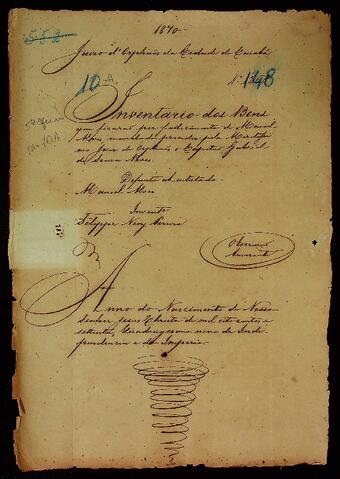 1870
552
Juizo d'Orphãos da Cidade de Cuiabá
10-A
Nº 148
Inventario dos Bens
que ficarão por fallecimento de Manoel
Alves mandado proceder pelo
Juiz de Orphãos o Capitão Gabriel
de Souza Neves.
Defunto abintestado
Manoel Alves
Invent.e
Felippe Nery
O Escrivão
Anno do Nascimento de Nosso
Senhor Jesus Christo de mil oito centos e
setenta, quadragesimo nono da Inde
pendencia e do Imperio